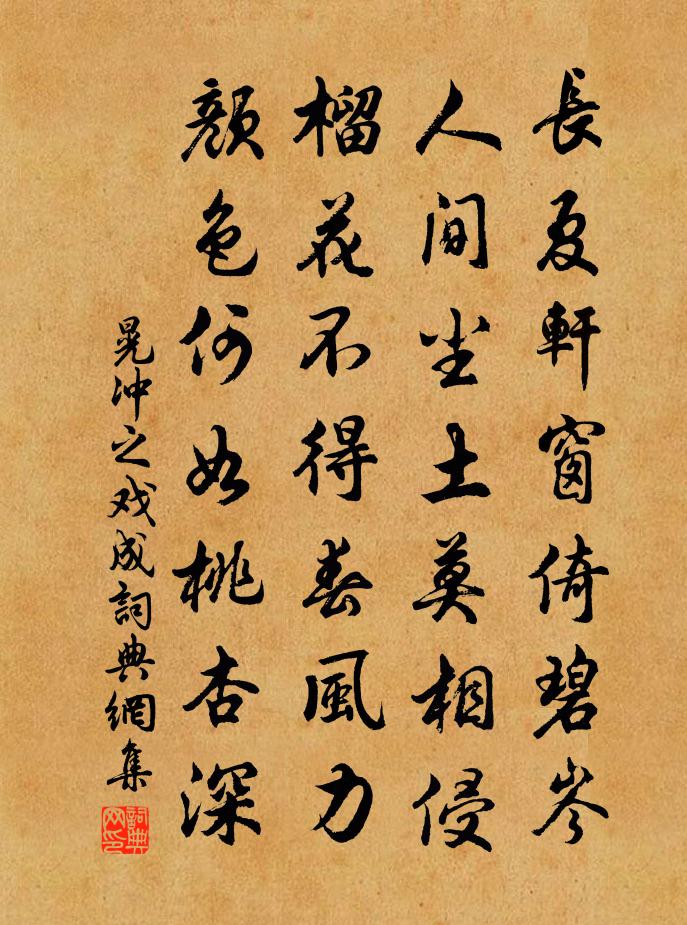 長夏軒窗倚碧岑
人間尘土莫相侵
榴花不得春風力
顏色何如桃杏深
晁冲之戏成詞典網集
詞典网印